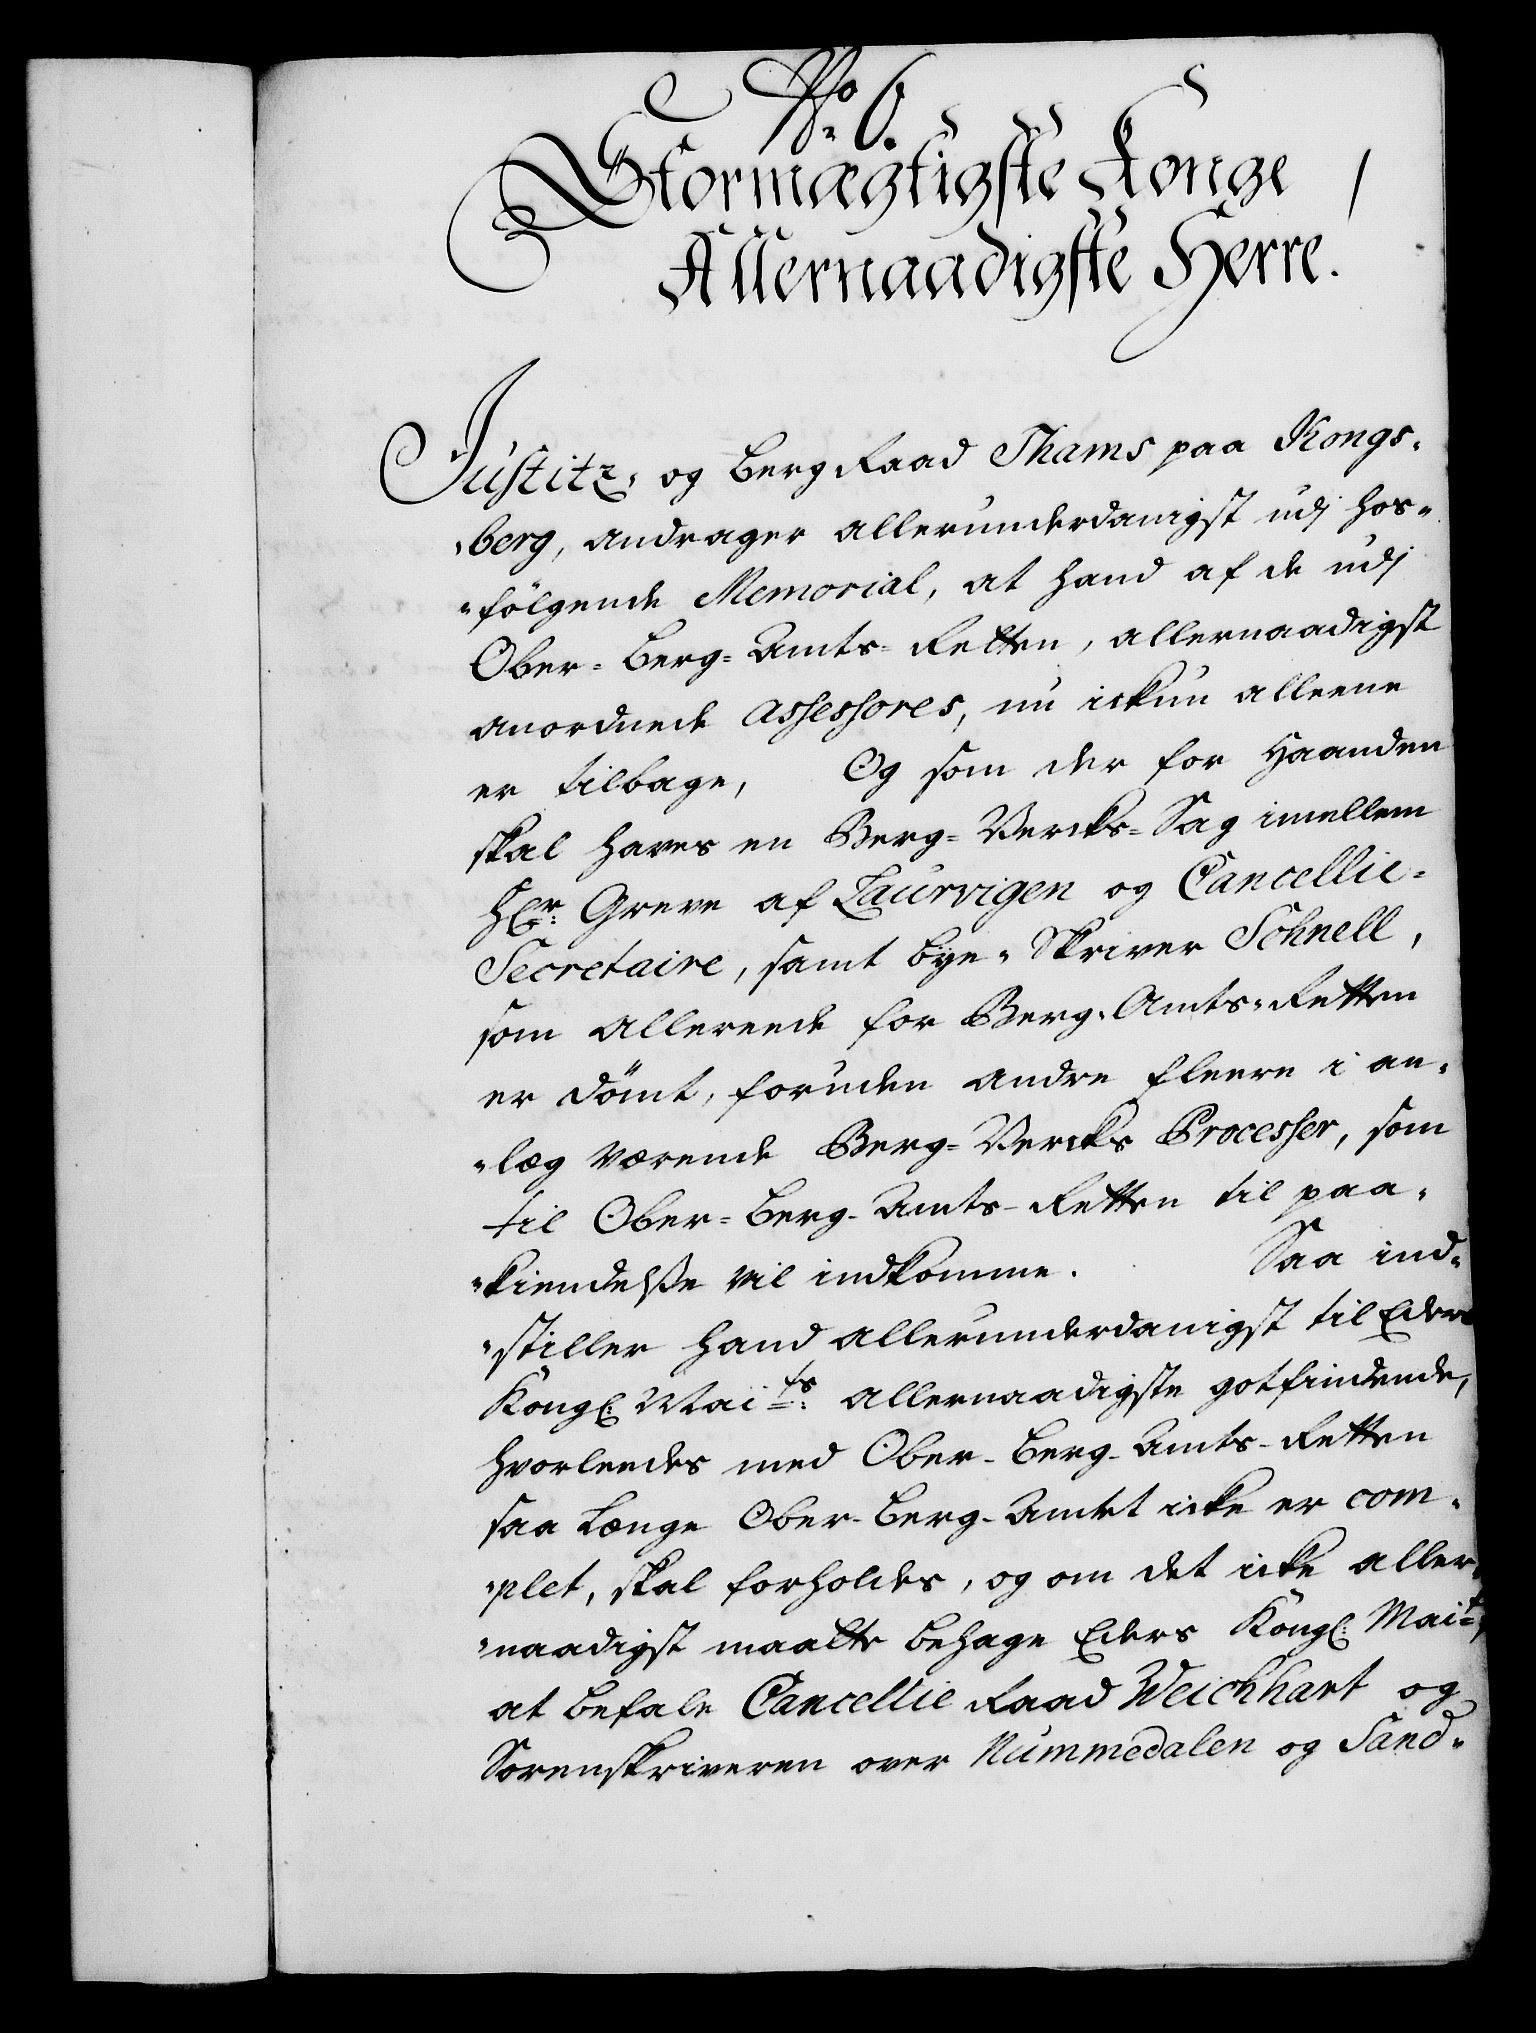 No 6.
Stormægtigste Konge
Allernaadigste Herre.
Justitz, og Berg Raad Thams paa Kongs-
-berg, andrager allerunderdanigst udj hos-
-følgende Memorial, at hand af de udj
Ober-Berg-Amts-Retten, allernaadigst
anordnede Assessores, nu ickun alleene
er tilbage, Og som der for Haanden
skal haves en Berg-Vercks-Sag imellem
Hr: Greve af Laurvigen og Cancellie-
Secretaire, samt bye-Skriver Schnell,
som allereede for Berg-Amts-Retten
er dömt, foruden andre fleere i an-
-læg værende Berg-Vercks Processer, som
til Ober-Berg-Amts-Retten til paa-
-kiendelsse vil indkomme. Saa ind-
-stiller hand allerunderdanigst til Eders
Kongl: Maits: allernaadigste gotfindende,
hvorleedes med Ober-Berg-Amts-Retten
saa længe Ober-Berg-Amtet icke er com-
-plet, skal forholdes, og om det icke aller-
-naadigst maatte behage Eders Kongl: Mait,
at befale Cancellie Raad Weichhart og
Sorenskriveren over Nummedalen og Sand-